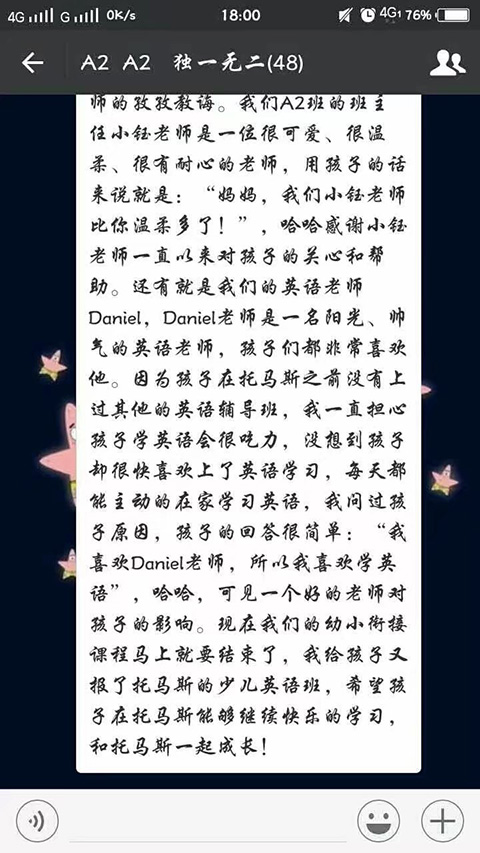 4G G 0K/s 18:00 4G1 76%
A2 A2 独一无二(48)
师的孜孜教诲。我们A2班的班主
任小钰老师是一位很可爱、很温
柔、很有耐心的老师，用孩子的话
来说就是：“妈妈，我们小钰老师
比你温柔多了！”，哈哈感谢小钰
老师一直以来对孩子的关心和帮
助。还有就是我们的英语老师
Daniel，Daniel老师是一名阳光、帅
气的英语老师，孩子们都非常喜欢
他。因为孩子在托马斯之前没有上
过其他的英语辅导班，我一直担心
孩子学英语会很吃力，没想到孩子
却很快喜欢上了英语学习，每天都
能主动的在家学习英语，我问过孩
子原因，孩子的回答很简单：“我
喜欢Daniel老师，所以我喜欢学英
语”，哈哈，可见一个好的老师对
孩子的影响。现在我们的幼小衔接
课程马上就要结束了，我给孩子又
报了托马斯的少儿英语班，希望孩
子在托马斯能够继续快乐的学习，
和托马斯一起成长！